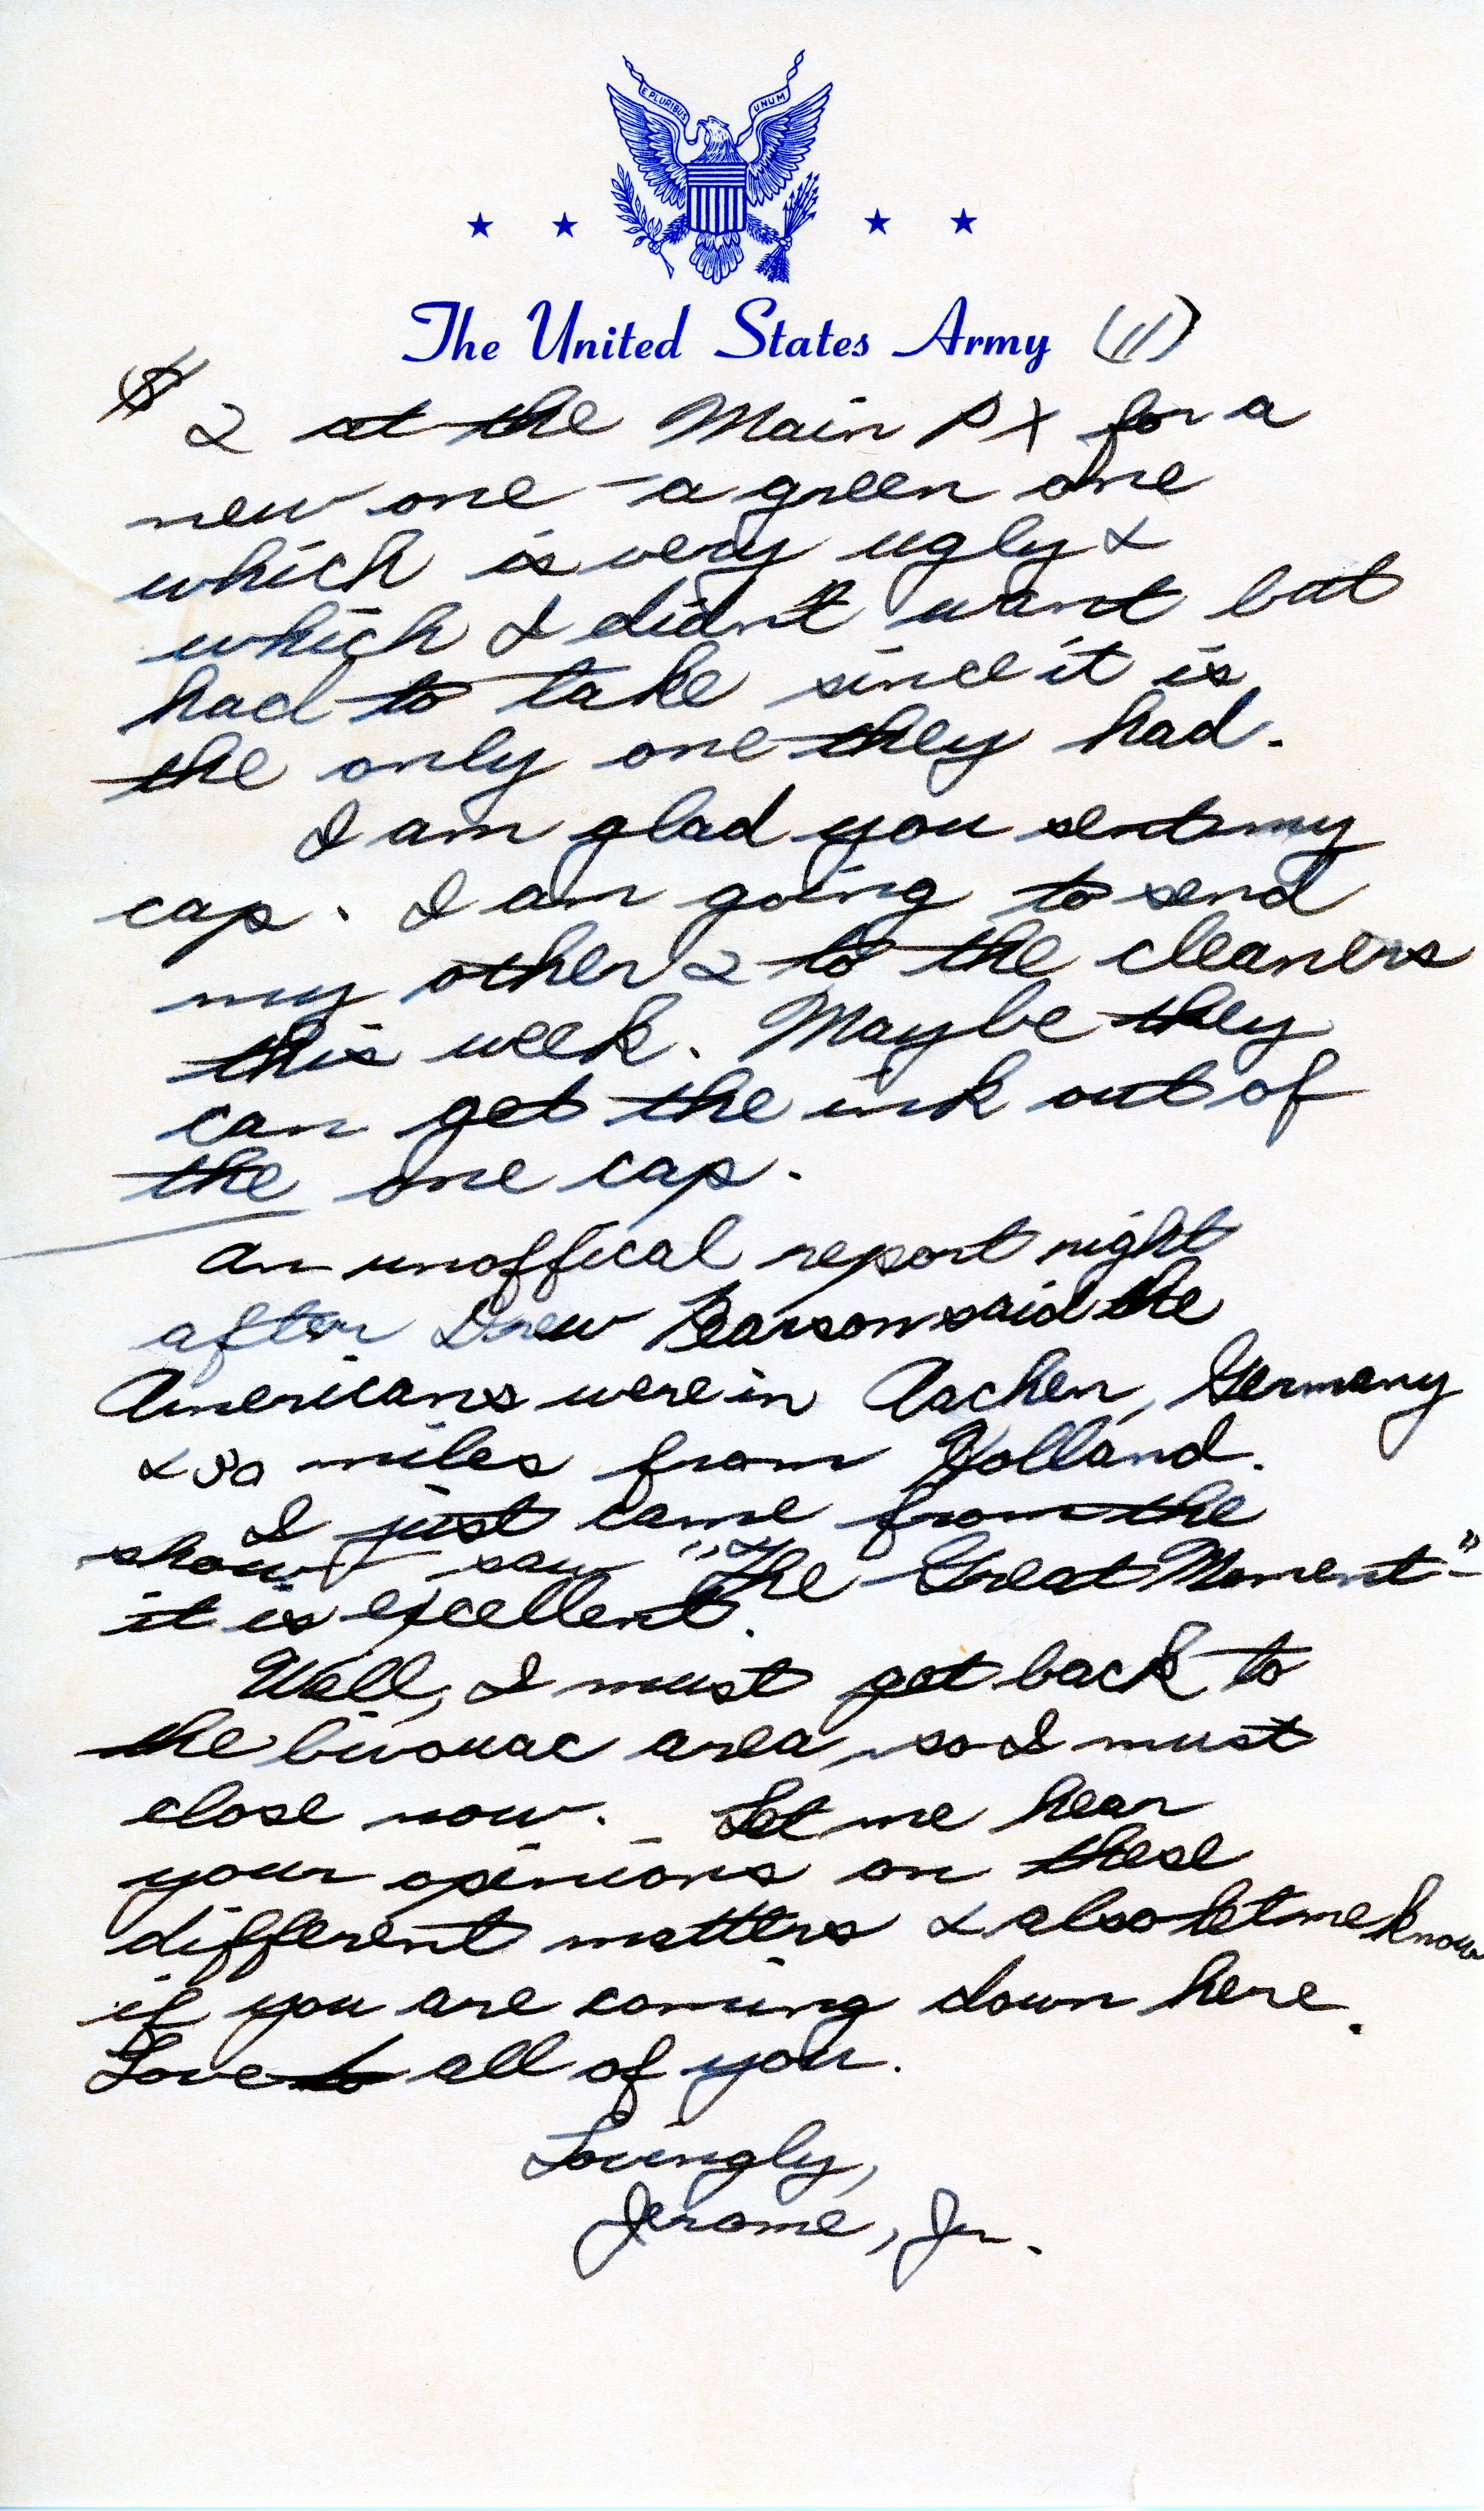 E PLURIBUS UNUM
The United States Army (11)
$2 at the Main PX for a
new one - a green one
which is very ugly &
which I didn't want but
had to take since it is
the only one they had.
I am glad you sent my
cap. I am going to send
my other 2 to the cleaners
this week. Maybe they
can get the ink out of
the one cap.
An unoffical report right
after Drew Pearson said the
Americans were in Aachen, Germany
& 30 miles from Holland.
I just came from the
show & saw "The Great Moment" -
it is excellent.
Well, I must get back to
the bivouac area, so I must
close now. Let me hear
your opinions on these
different matters & also let me know
if you are coming down here.
Love to all of you.
Lovingly,
Jerome, Jr.